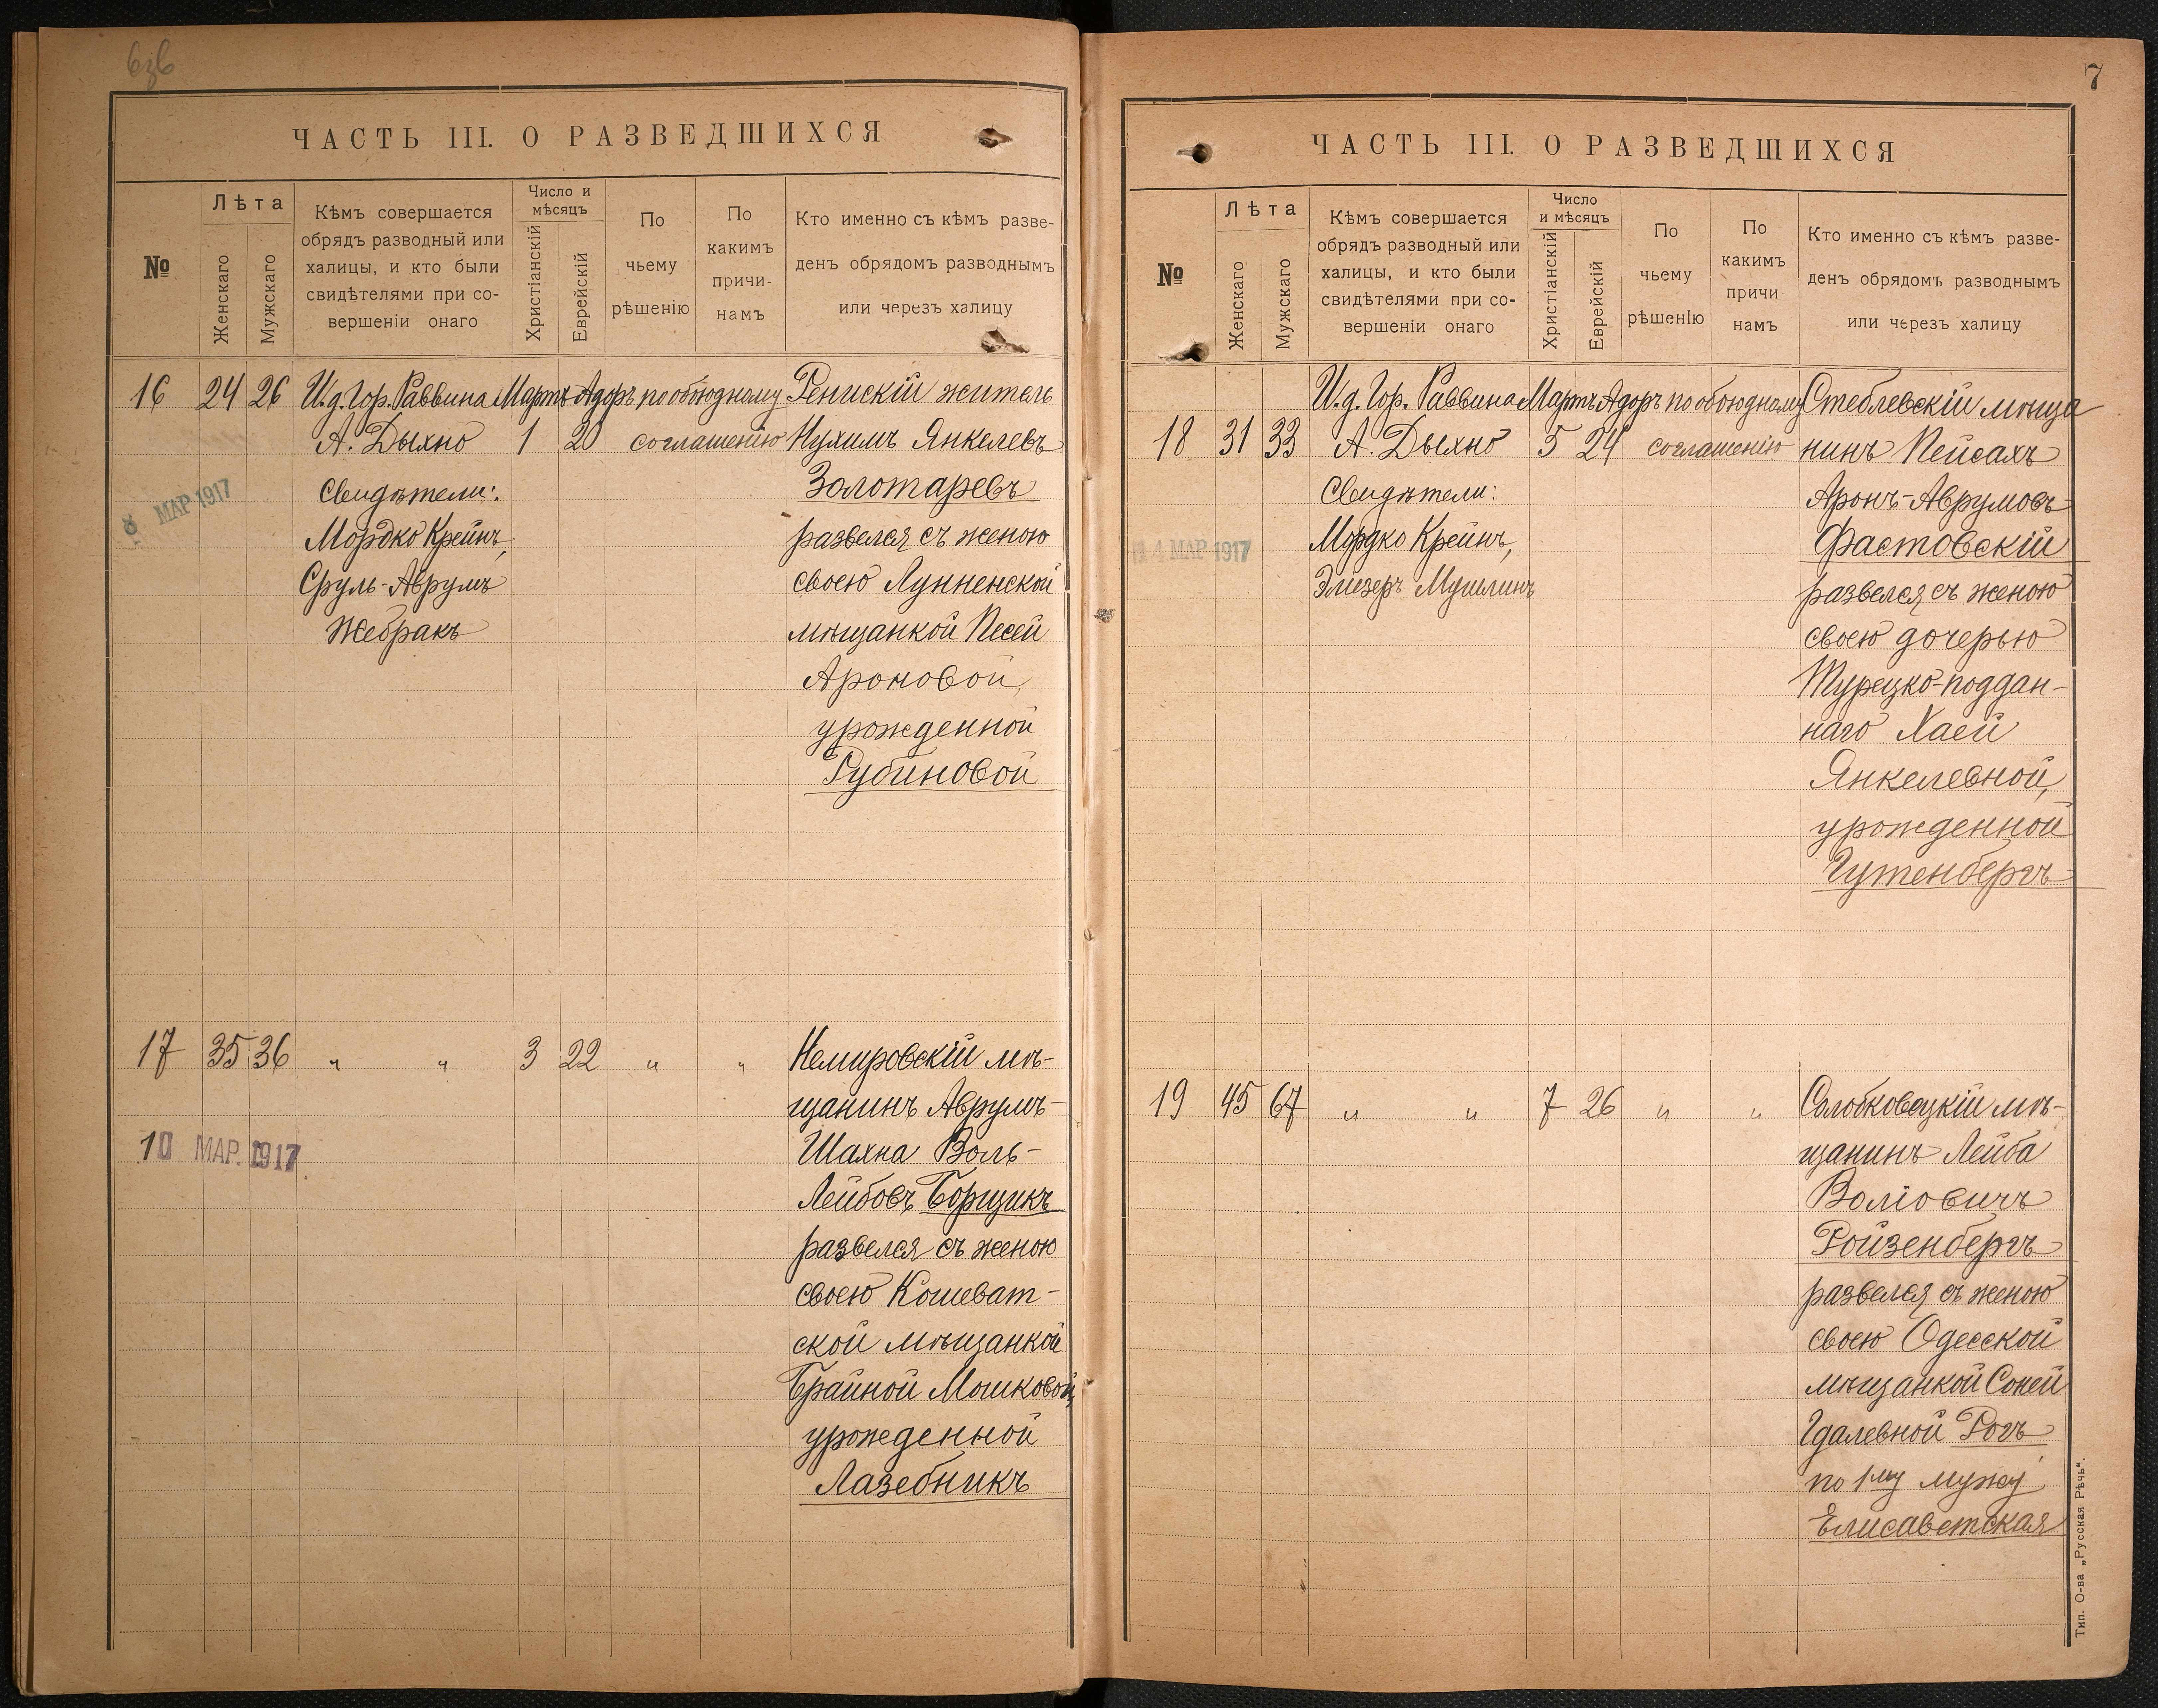 ЧАСТЬ III. О РАЗВЕДШИХСЯ
№
Лѣта
Женскаго
Мужскаго
Кѣмъ совершается
обрядъ разводный или
халицы, и кто были
свидѣтелями при со-
вершеніи онаго
Число и
мѣсяцъ
Христіанскій
Еврейскій
По
чьему
рѣшенію
По
какимъ
причи-
намъ
Кто именно съ кѣмъ разве-
денъ обрядомъ разводнымъ
или черезъ халицу
16 24 26 И.д. Гор. Раввина Мартъ Адоръ по обоюдному Ренискій житель
А. Дыхно 1 20 соглашенію Нухимъ Янкелевъ
Свидѣтели: Золотаревъ
8 МАР 1917
Мордко Крейнъ, развелся съ женою
Сруль-Аврумъ своею Лунненской
Жебракъ мѣщанкой Песей
Ароновой,
урожденной
Рубиновой
17 35 36 " " 3 22 " " Немировскій мѣ-
щанинъ Аврумъ-
10 МАР. 1917 Шахна Воль-
Лейбовъ Борщикъ
развелся съ женою
своею Кошеват-
ской мѣщанкой
Брайной Мошковой,
урожденной
Лазебникъ
7
ЧАСТЬ III. О РАЗВЕДШИХСЯ
№
Лѣта
Женскаго
Мужскаго
Кѣмъ совершается
обрядъ разводный или
халицы, и кто были
свидѣтелями при со-
вершеніи онаго
Число
и мѣсяцъ
Христіанскій
Еврейскій
По
чьему
рѣшенію
По
какимъ
причи
намъ
Кто именно съ кѣмъ разве-
денъ обрядомъ разводнымъ
или черезъ халицу
И.д. Гор. Раввина Мартъ Адоръ по обоюдному Стеблевскій мѣща
18 31 33 А. Дыхно 5 24 соглашенію нинъ Пейсахъ
Свидѣтели: Аронъ-Аврумовъ
14 МАР 1917 Мордко Крейнъ, Фастовскій
Элиезеръ Мушлинъ развелся съ женою
своею дочерью
Турецко-поддан-
наго Хаей
Янкелевной,
урожденной
Гутенбергъ
19 45 67 " " 7 26 " " Солобковецкій мѣ-
щанинъ Лейба
Воліовичъ
Ройзенбергъ
развелся съ женою
своею Одесской
мѣщанкой Соней
Гдалевной Рогъ
по 1му мужу
Елисаветская
Тип. О-ва „Русская Рѣчь".